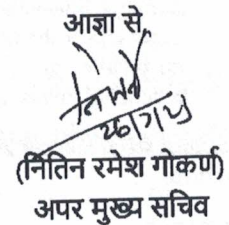 आज्ञा से,
(नितिन रमेश गोकर्ण)
अपर मुख्य सचिव